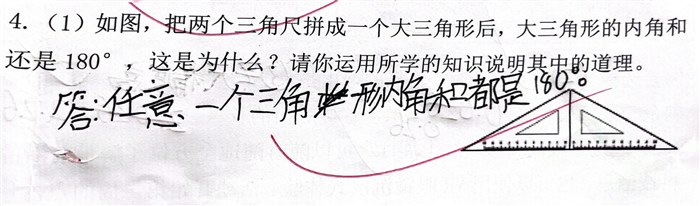 4.（1）如图，把两个三角尺拼成一个大三角形后，大三角形的内角和
还是 180°，这是为什么？请你运用所学的知识说明其中的道理。
答:任意一个三角形内角和都是180°